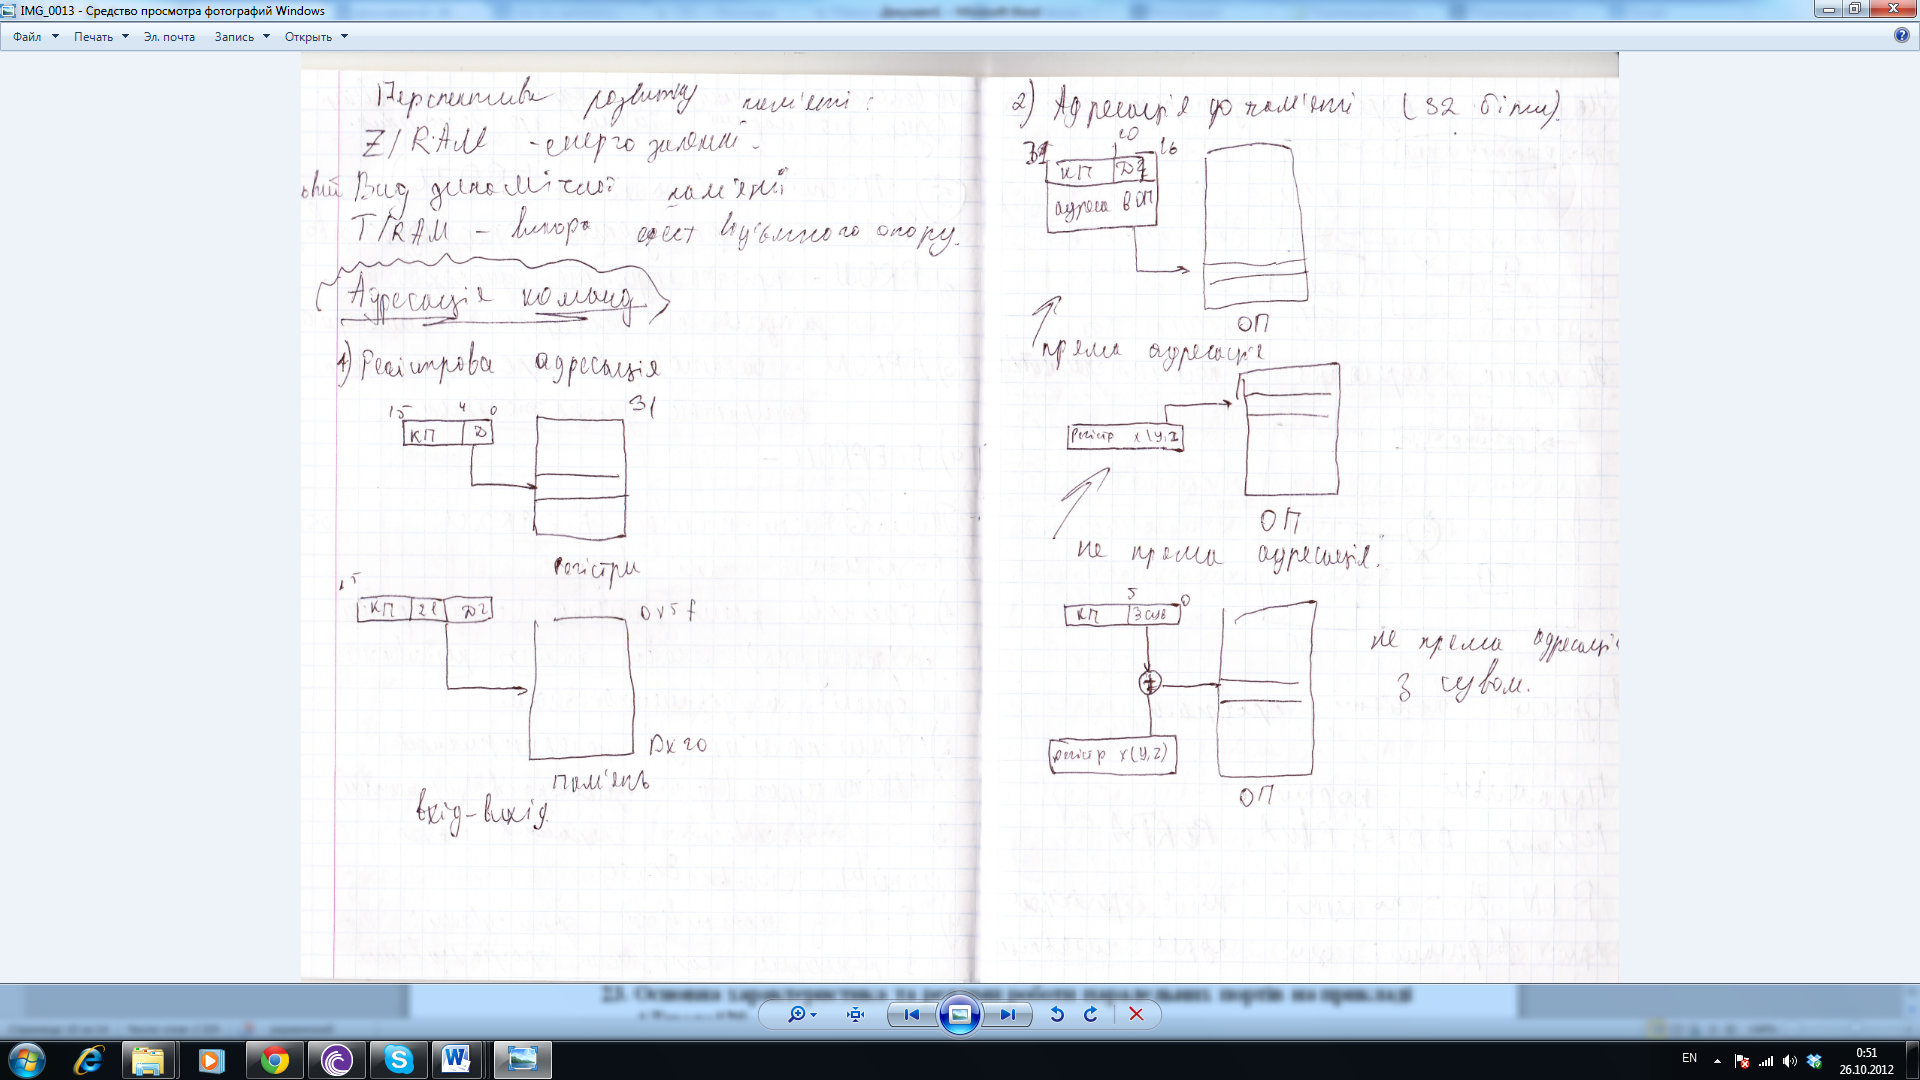 IMG_0013 - Средство просмотра фотографий Windows
Файл Печать Эл. почта Запись Открыть
Перспективи розвитку пам'яті:
Z/RAM - енерго залежні.
Вид динамічної пам'яті
T/RAM - викор ефект від'ємного опору.
Адресація команд
1) Регістрова адресація
15 4 0 31
КП D
Регістри
15
КП D2
0x5f
0x20
пам'ять
вхід-вихід.
2) Адресація до пам'яті (32 біти).
31 20 16
КП
адреса в ОП
ОП
пряма адресація
регістр x(y,z)
ОП
не пряма адресація.
5 0
КП Зсув
+
не пряма адресація
з сувом.
регістр x(y,z)
ОП
23. Основна характеристика та режими роботи паралельних портів на прикладі
EN
0:51
26.10.2012